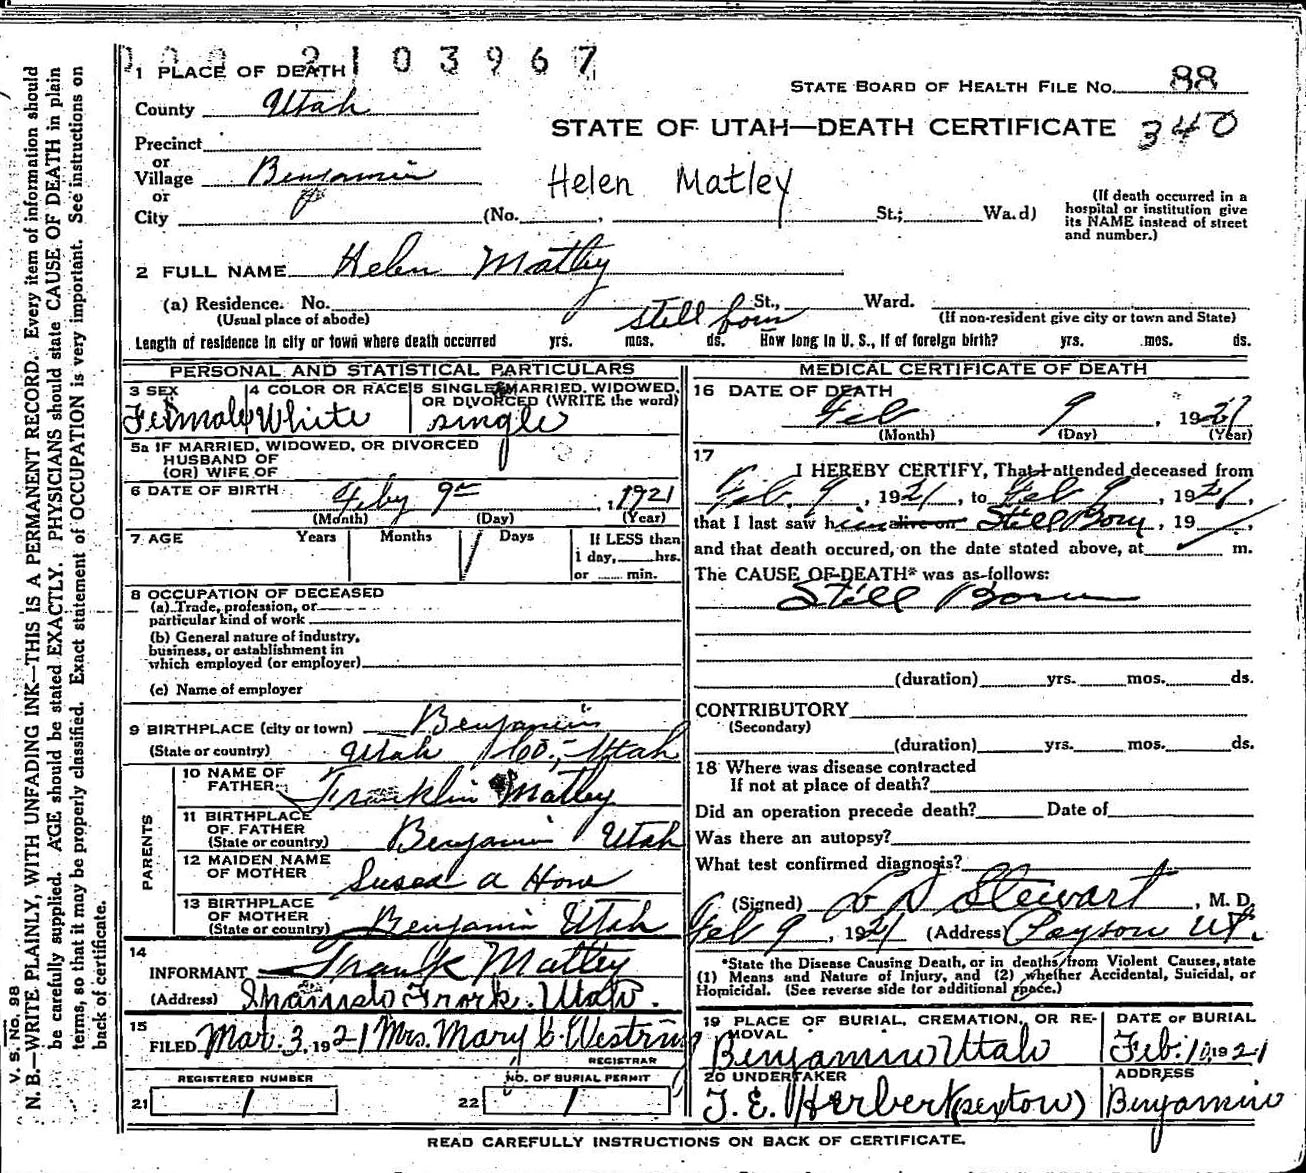 2103967
1 PLACE OF DEATH
STATE BOARD OF HEALTH FILE NO. 88
County Utah
STATE OF UTAH—DEATH CERTIFICATE 340
Precinct
or
Village Benjamin
Helen Matley
or
City (No. , St.; Wa.d)
(If death occurred in a
hospital or institution give
its NAME instead of street
and number.)
2 FULL NAME Helen Matley
(a) Residence. No. St., Ward.
(Usual place of abode) Still born (If non-resident give city or town and State)
Length of residence in city or town where death occurred yrs. mos. ds. How long in U. S., if of foreign birth? yrs. mos. ds.
PERSONAL AND STATISTICAL PARTICULARS
3 SEX 4 COLOR OR RACE 5 SINGLE, MARRIED, WIDOWED,
OR DIVORCED (WRITE the word)
Female White single
5a IF MARRIED, WIDOWED, OR DIVORCED
HUSBAND OF
(OR) WIFE OF
6 DATE OF BIRTH Feby 9 , 1921
(Month) (Day) (Year)
7 AGE Years Months Days If LESS than
1 day, hrs.
or min.
8 OCCUPATION OF DECEASED
(a) Trade, profession, or
particular kind of work
(b) General nature of industry,
business, or establishment in
which employed (or employer)
(c) Name of employer
9 BIRTHPLACE (city or town) Benjamin
(State or country) Utah Co., Utah
PARENTS
10 NAME OF
FATHER Franklin Matley
11 BIRTHPLACE
OF FATHER
(State or country) Benjamin Utah
12 MAIDEN NAME
OF MOTHER Susea a Hone
13 BIRTHPLACE
OF MOTHER
(State or country) Benjamin Utah
14
INFORMANT Frank Matley
(Address) Spanish Frork. Utah.
15
FILED Mar. 3, 1921 Mrs. Mary C. Westring
REGISTRAR
REGISTERED NUMBER NO. OF BURIAL PERMIT
21 1 22 1
MEDICAL CERTIFICATE OF DEATH
16 DATE OF DEATH
Feb 9 , 1921
(Month) (Day) (Year)
17
I HEREBY CERTIFY, That I attended deceased from
Feb. 9 , 1921, to Feb 9 , 1921,
that I last saw him alive on Still Born, 19 ,
and that death occured, on the date stated above, at m.
The CAUSE OF DEATH* was as follows:
Still Born
(duration) yrs. mos. ds.
CONTRIBUTORY
(Secondary)
(duration) yrs. mos. ds.
18 Where was disease contracted
If not at place of death?
Did an operation precede death? Date of
Was there an autopsy?
What test confirmed diagnosis?
(Signed) Stewart , M. D.
Feb 9 , 1921 (Address) Payson Ut.
*State the Disease Causing Death, or in deaths from Violent Causes, state
(1) Means and Nature of Injury, and (2) whether Accidental, Suicidal, or
Homicidal. (See reverse side for additional space.)
19 PLACE OF BURIAL, CREMATION, OR RE- DATE OF BURIAL
MOVAL
Benjamin Utah Feb. 10 1921
20 UNDERTAKER ADDRESS
T. E. Herbert (sexton) Benjamin
READ CAREFULLY INSTRUCTIONS ON BACK OF CERTIFICATE.
V. S. No. 98
N. B.—WRITE PLAINLY, WITH UNFADING INK—THIS IS A PERMANENT RECORD. Every item of information should
be carefully supplied. AGE should be stated EXACTLY. PHYSICIANS should state CAUSE OF DEATH in plain
terms, so that it may be properly classified. Exact statement of OCCUPATION is very important. See instructions on
back of certificate.